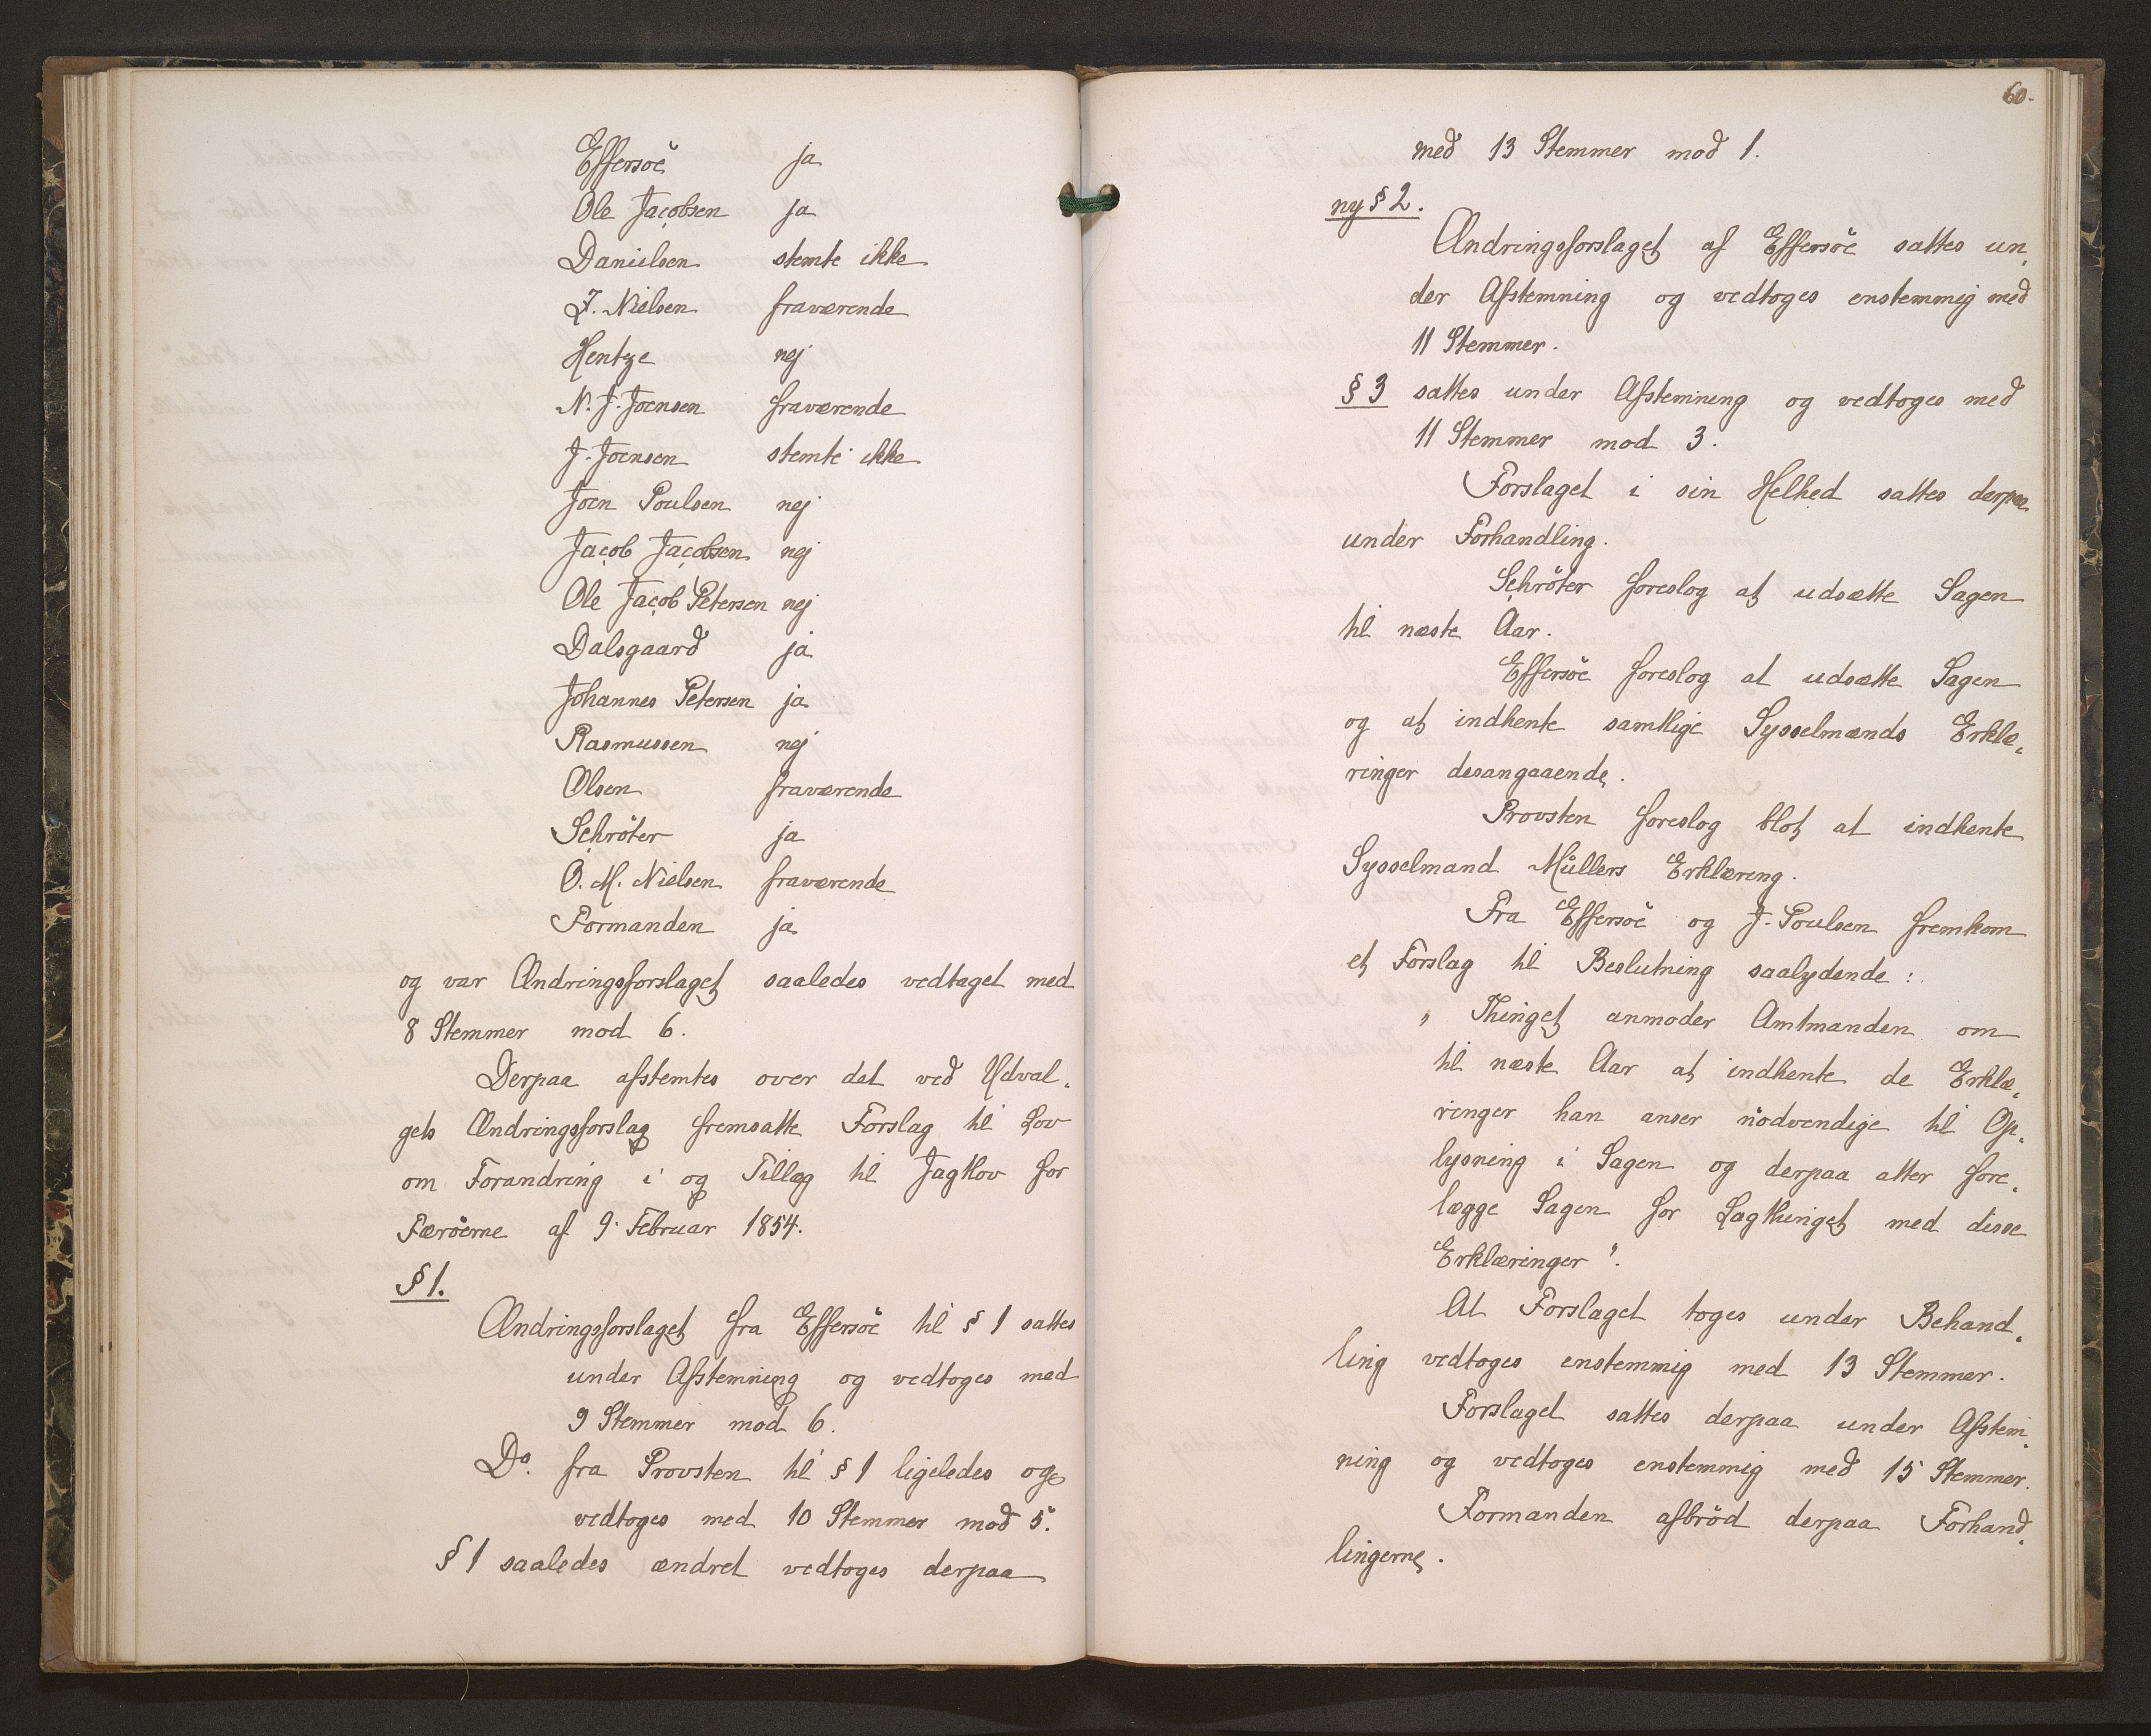 Effersöe ja
Ole Jacobsen ja
Danielsen stemte ikke
J. Nielsen fraværende
Hentze nej
N. J. Joensen fraværende
J. Joensen stemte ikke
Joen Poulsen nej
Jacob Jacobsen nej
Ole Jacob Petersen nej
Dalsgaard ja
Johannes Petersen ja
Rasmussen nej
Olsen fraværende
Schröter ja
O. M. Nielsen fraværende
Formanden ja
og var Ændringsforslaget saaledes vedtaget med
8 Stemmer mod 6.
Derpaa afstemtes over det ved Udval-
gets Ændringsforslag fremsatte Forslag til Lov
om Forandring i og Tillæg til Jagtlov for
Færöerne af 9. Februar 1854.
§ 1.
Ændringsforslaget fra Effersöe til § 1 sattes
under Afstemning og vedtoges med
9 Stemmer mod 6.
Do. fra Provsten til § 1 ligeledes og
vedtoges med 10 Stemmer mod 5.
§ 1 saaledes ændret vedtoges derpaa
60.
med 13 Stemmer mod 1.
ny § 2.
Ændringsforslaget af Effersöe sattes un-
der Afstemning og vedtoges enstemmig med
11 Stemmer.
§ 3 sattes under Afstemning og vedtoges med
11 Stemmer mod 3.
Forslaget i sin Helhed sattes derpaa
under Forhandling.
Schröter foreslog at udsætte Sagen
til næste Aar.
Effersöe foreslog at udsætte Sagen
og at indhente samtlige Sysselmænds Erklæ-
ringer desangaaende.
Provsten foreslog blot at indhente
Sysselmand Müllers Erklæring.
Fra Effersöe og J. Poulsen fremkom
et Forslag til Beslutning saalydende:
" Thinget anmoder Amtmanden om
til næste Aar at indhente de Erklæ-
ringer han anser nödvendige til Op-
lysning i Sagen og derpaa atter fore-
lægge Sagen for Lagthinget med disse
Erklæringer".
At Forslaget toges under Behand-
ling vedtoges enstemmig med 13 Stemmer.
Forslaget sattes derpaa under Afstem-
ning og vedtoges enstemmig med 15 Stemmer.
Formanden afbröd derpaa Forhand-
lingerne.